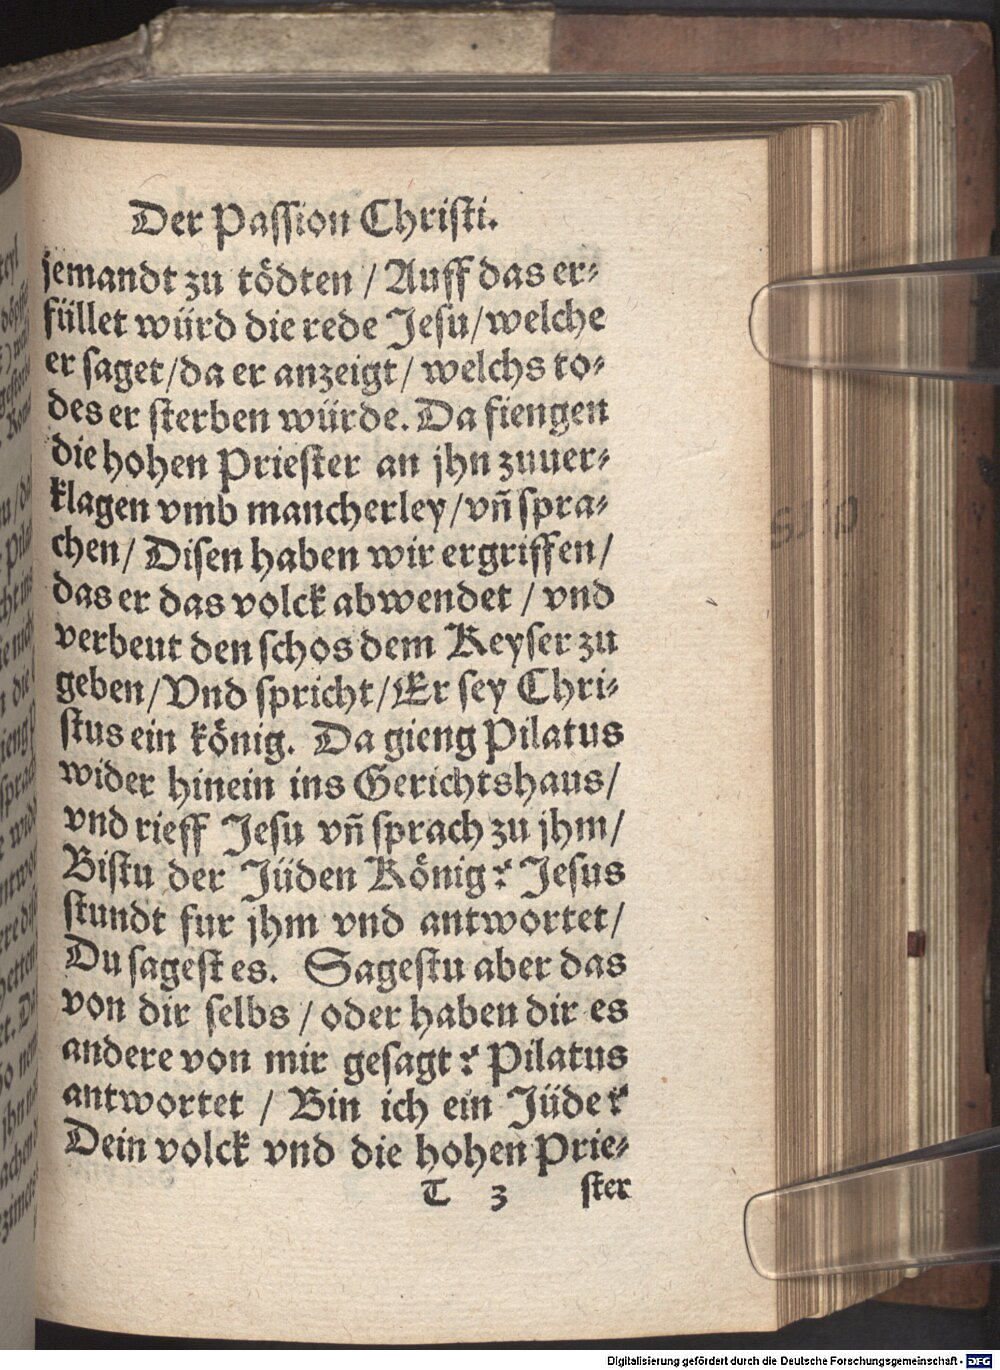 Der Passion Christi.
jemandt zu tödten / Auff das er⸗
füllet würd die rede Jesu/welche
er saget/da er anzeigt/ welchs to⸗
des er sterben würde. Da fiengen
die hohen Priester an jhn zuuer⸗
klagen vmb mancherley/vñ spra⸗
chen/ Disen haben wir ergriffen/
das er das volck abwendet / vnd
verbeut den schos dem Keyser zu
geben/Vnd spricht/Er sey Chri⸗
stus ein könig. Da gieng Pilatus
wider hinein ins Gerichtshaus/
vnd rieff Jesu vñ sprach zu jhm/
Bistu der Jüden König? Jesus
stundt fur jhm vnd antwortet/
Du sagest es. Sagestu aber das
von dir selbs / oder haben dir es
andere von mir gesagt? Pilatus
antwortet / Bin ich ein Jüde?
Dein volck vnd die hohen Prie⸗
T 3 ster
Digitalisierung gefördert durch die Deutsche Forschungsgemeinschaft - DFG